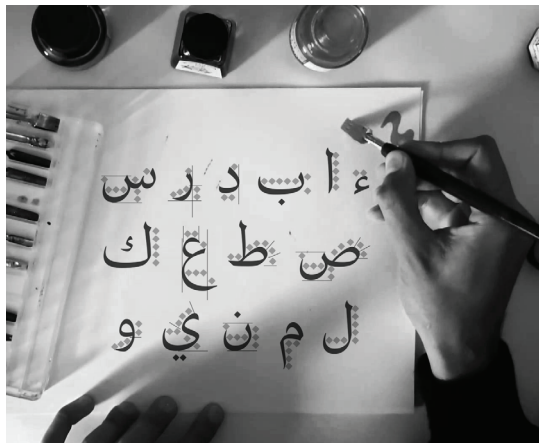 ء ا ب د ر س
ص ط ع ك
ل م ن ي و